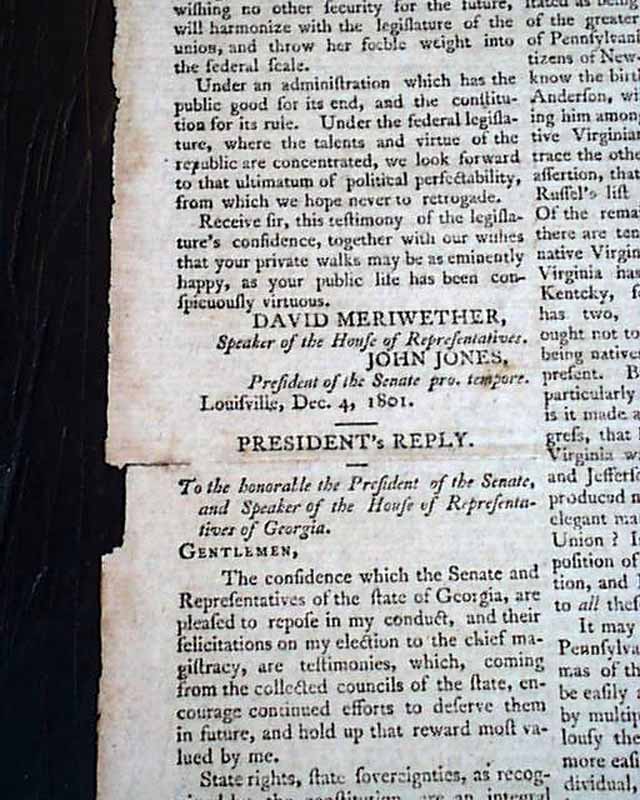 wiſhing no other ſecurity for the future,
will harmonize with the legiſlature of the
union, and throw her feeble weight into
the federal ſcale.
Under an adminiſtration which has the
public good for its end, and the conſtitu-
tion for its rule. Under the federal legiſla-
ture, where the talents and virtue of the
republic are concentrated, we look forward
to that ultimatum of political perfectability,
from which we hope never to retrogade.
Receive ſir, this teſtimony of the legiſla-
ture's confidence, together with our wiſhes
that your private walks may be as eminently
happy, as your public life has been con-
ſpicuouſly virtuous.
DAVID MERIWETHER,
Speaker of the Houſe of Repreſentatives.
JOHN JONES,
Preſident of the Senate pro. tempore.
Louiſville, Dec. 4, 1801.
PRESIDENT's REPLY.
To the honorable the Preſident of the Senate,
and Speaker of the Houſe of Repreſenta-
tives of Georgia.
GENTLEMEN,
The confidence which the Senate and
Repreſentatives of the ſtate of Georgia, are
pleaſed to repoſe in my conduct, and their
felicitations on my election to the chief ma-
giſtracy, are teſtimonies, which, coming
from the collected councils of the ſtate, en-
courage continued efforts to deſerve them
in future, and hold up that reward moſt va-
lued by me.
State rights, ſtate ſovereignties, as recog-
the conſtitution are an integral
of the greater
of Pennſylvani
tizens of New-
know the birth
Anderſon, wi
ing him among
tive Virginia
trace the othe
aſſertion, that
Ruſſel's liſt
Of the remai
there are ten
native Virgin
Virginia has
Kentcky, ſo
has two,
ought not to
being native
preſent. B
particularly
is it made a
greſs, that
Virginia wa
and Jefferſo
produced n
elegant ma
Union ? I
poſition of
tion, and
to all theſ
It may
Pennſylva
mas of th
be eaſily
by multip
louſy the
more eaſi
dividual,